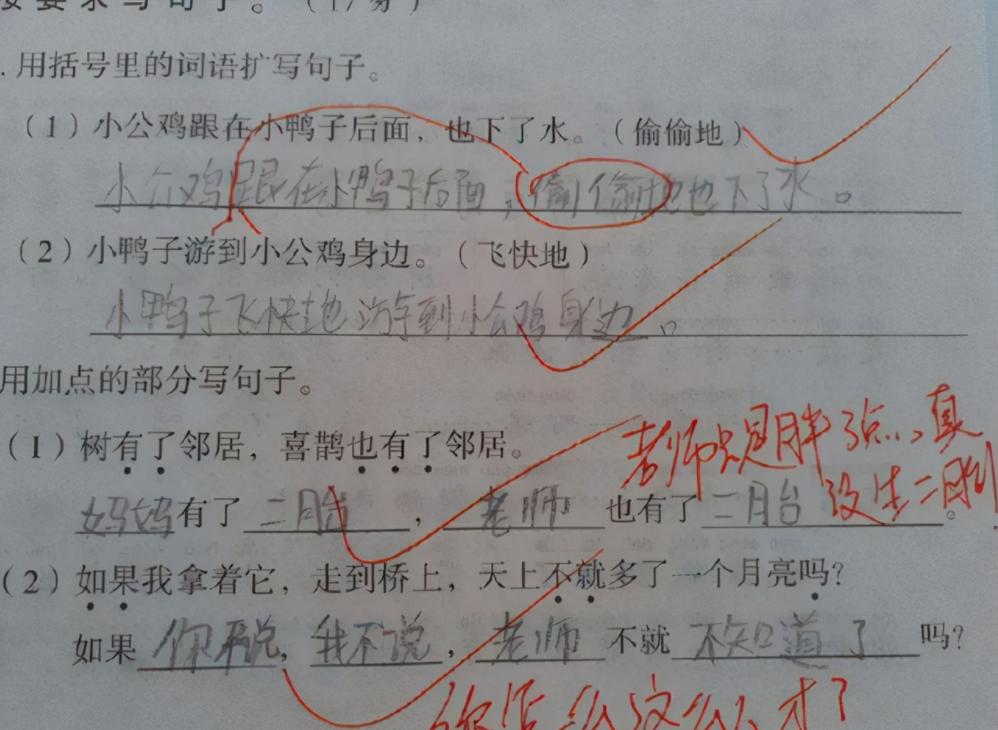 按要求写句子。（17分）
.用括号里的词语扩写句子。
（1）小公鸡跟在小鸭子后面，也下了水。（偷偷地）
小公鸡跟在小鸭子后面，偷偷地也下了水。
（2）小鸭子游到小公鸡身边。（飞快地）
小鸭子飞快地游到小公鸡身边。
用加点的部分写句子。
（1）树有了邻居，喜鹊也有了邻居。
老师只是胖了点，真
妈妈有了二胎，老师也有了二胎。
没生二胎
（2）如果我拿着它，走到桥上，天上不就多了一个月亮吗？
如果你不说，我不说，老师不就不知道了吗？
你怎么这么